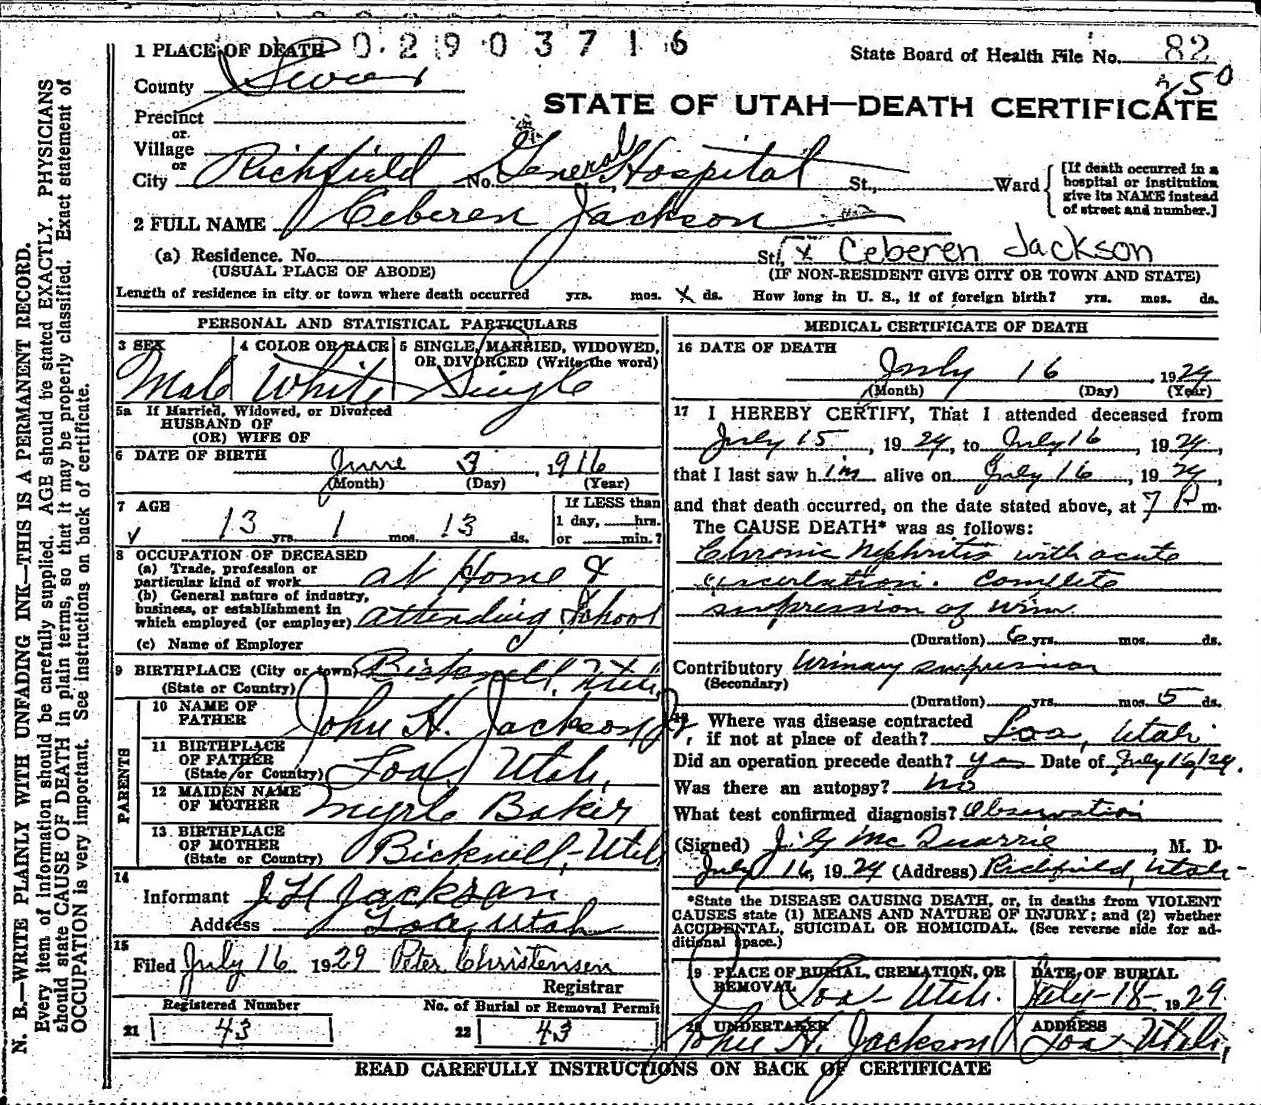 0.2903716
1 PLACE OF DEATH
State Board of Health File No. 82
County Sevier
250
STATE OF UTAH—DEATH CERTIFICATE
Precinct
or
Village
or
City Richfield No. General Hospital St., Ward
[If death occurred in a hospital or institution give its NAME instead of street and number.]
2 FULL NAME Ceberen Jackson
(a) Residence. No. St. x Ceberen Jackson
(USUAL PLACE OF ABODE) (IF NON-RESIDENT GIVE CITY OR TOWN AND STATE)
Length of residence in city or town where death occurred yrs. mos. x ds. How long in U. S., if of foreign birth? yrs. mos. ds.
PERSONAL AND STATISTICAL PARTICULARS
3 SEX 4 COLOR OR RACE 5 SINGLE, MARRIED, WIDOWED, OR DIVORCED (Write the word)
Male White Single
5a If Married, Widowed, or Divorced
HUSBAND OF
(OR) WIFE OF
6 DATE OF BIRTH June 3, 1916
(Month) (Day) (Year)
7 AGE If LESS than
1 day, hrs.
13 yrs. 1 mos. 13 ds. or min.?
8 OCCUPATION OF DECEASED
(a) Trade, profession or
particular kind of work at Home &
(b) General nature of industry,
business, or establishment in
which employed (or employer) attending School
(c) Name of Employer
9 BIRTHPLACE (City or town) Bicknell, Utah
(State or Country)
PARENTS
10 NAME OF FATHER John H. Jackson Jr
11 BIRTHPLACE OF FATHER Loa, Utah,
(State or Country)
12 MAIDEN NAME OF MOTHER Myrle Baker
13 BIRTHPLACE OF MOTHER Bicknell, Utah
(State or Country)
14
Informant J H Jackson
Address Loa, Utah
15
Filed July 16 1929 Peter Christensen
Registrar
Registered Number No. of Burial or Removal Permit
21 43 22 43
MEDICAL CERTIFICATE OF DEATH
16 DATE OF DEATH
July 16, 1929
(Month) (Day) (Year)
17 I HEREBY CERTIFY, That I attended deceased from
July 15, 1929, to July 16, 1929,
that I last saw him alive on July 16, 1929,
and that death occurred, on the date stated above, at 7 P m.
The CAUSE DEATH* was as follows:
Chronic Nephritis with acute
Complete
supression of urin
(Duration) 6 yrs. mos. ds.
Contributory Urinary supression
(Secondary)
(Duration) yrs. mos. 5 ds.
Where was disease contracted
if not at place of death? Loa, Utah
Did an operation precede death? yes Date of July 16/29.
Was there an autopsy? no
What test confirmed diagnosis? Observation
(Signed) J. G. McQuarrie, M. D.
July 16, 1929 (Address) Richfield, Utah
*State the DISEASE CAUSING DEATH, or, in deaths from VIOLENT
CAUSES state (1) MEANS AND NATURE OF INJURY; and (2) whether
ACCIDENTAL, SUICIDAL OR HOMICIDAL. (See reverse side for ad-
ditional space.)
19 PLACE OF BURIAL, CREMATION, OR REMOVAL DATE OF BURIAL
Loa Utah. July-18-1929
20 UNDERTAKER ADDRESS
John H. Jackson Loa Utah,
READ CAREFULLY INSTRUCTIONS ON BACK OF CERTIFICATE
N. B.—WRITE PLAINLY WITH UNFADING INK—THIS IS A PERMANENT RECORD.
Every item of information should be carefully supplied. AGE should be stated EXACTLY. PHYSICIANS
should state CAUSE OF DEATH in plain terms, so that it may be properly classified. Exact statement of
OCCUPATION is very important. See instructions on back of certificate.